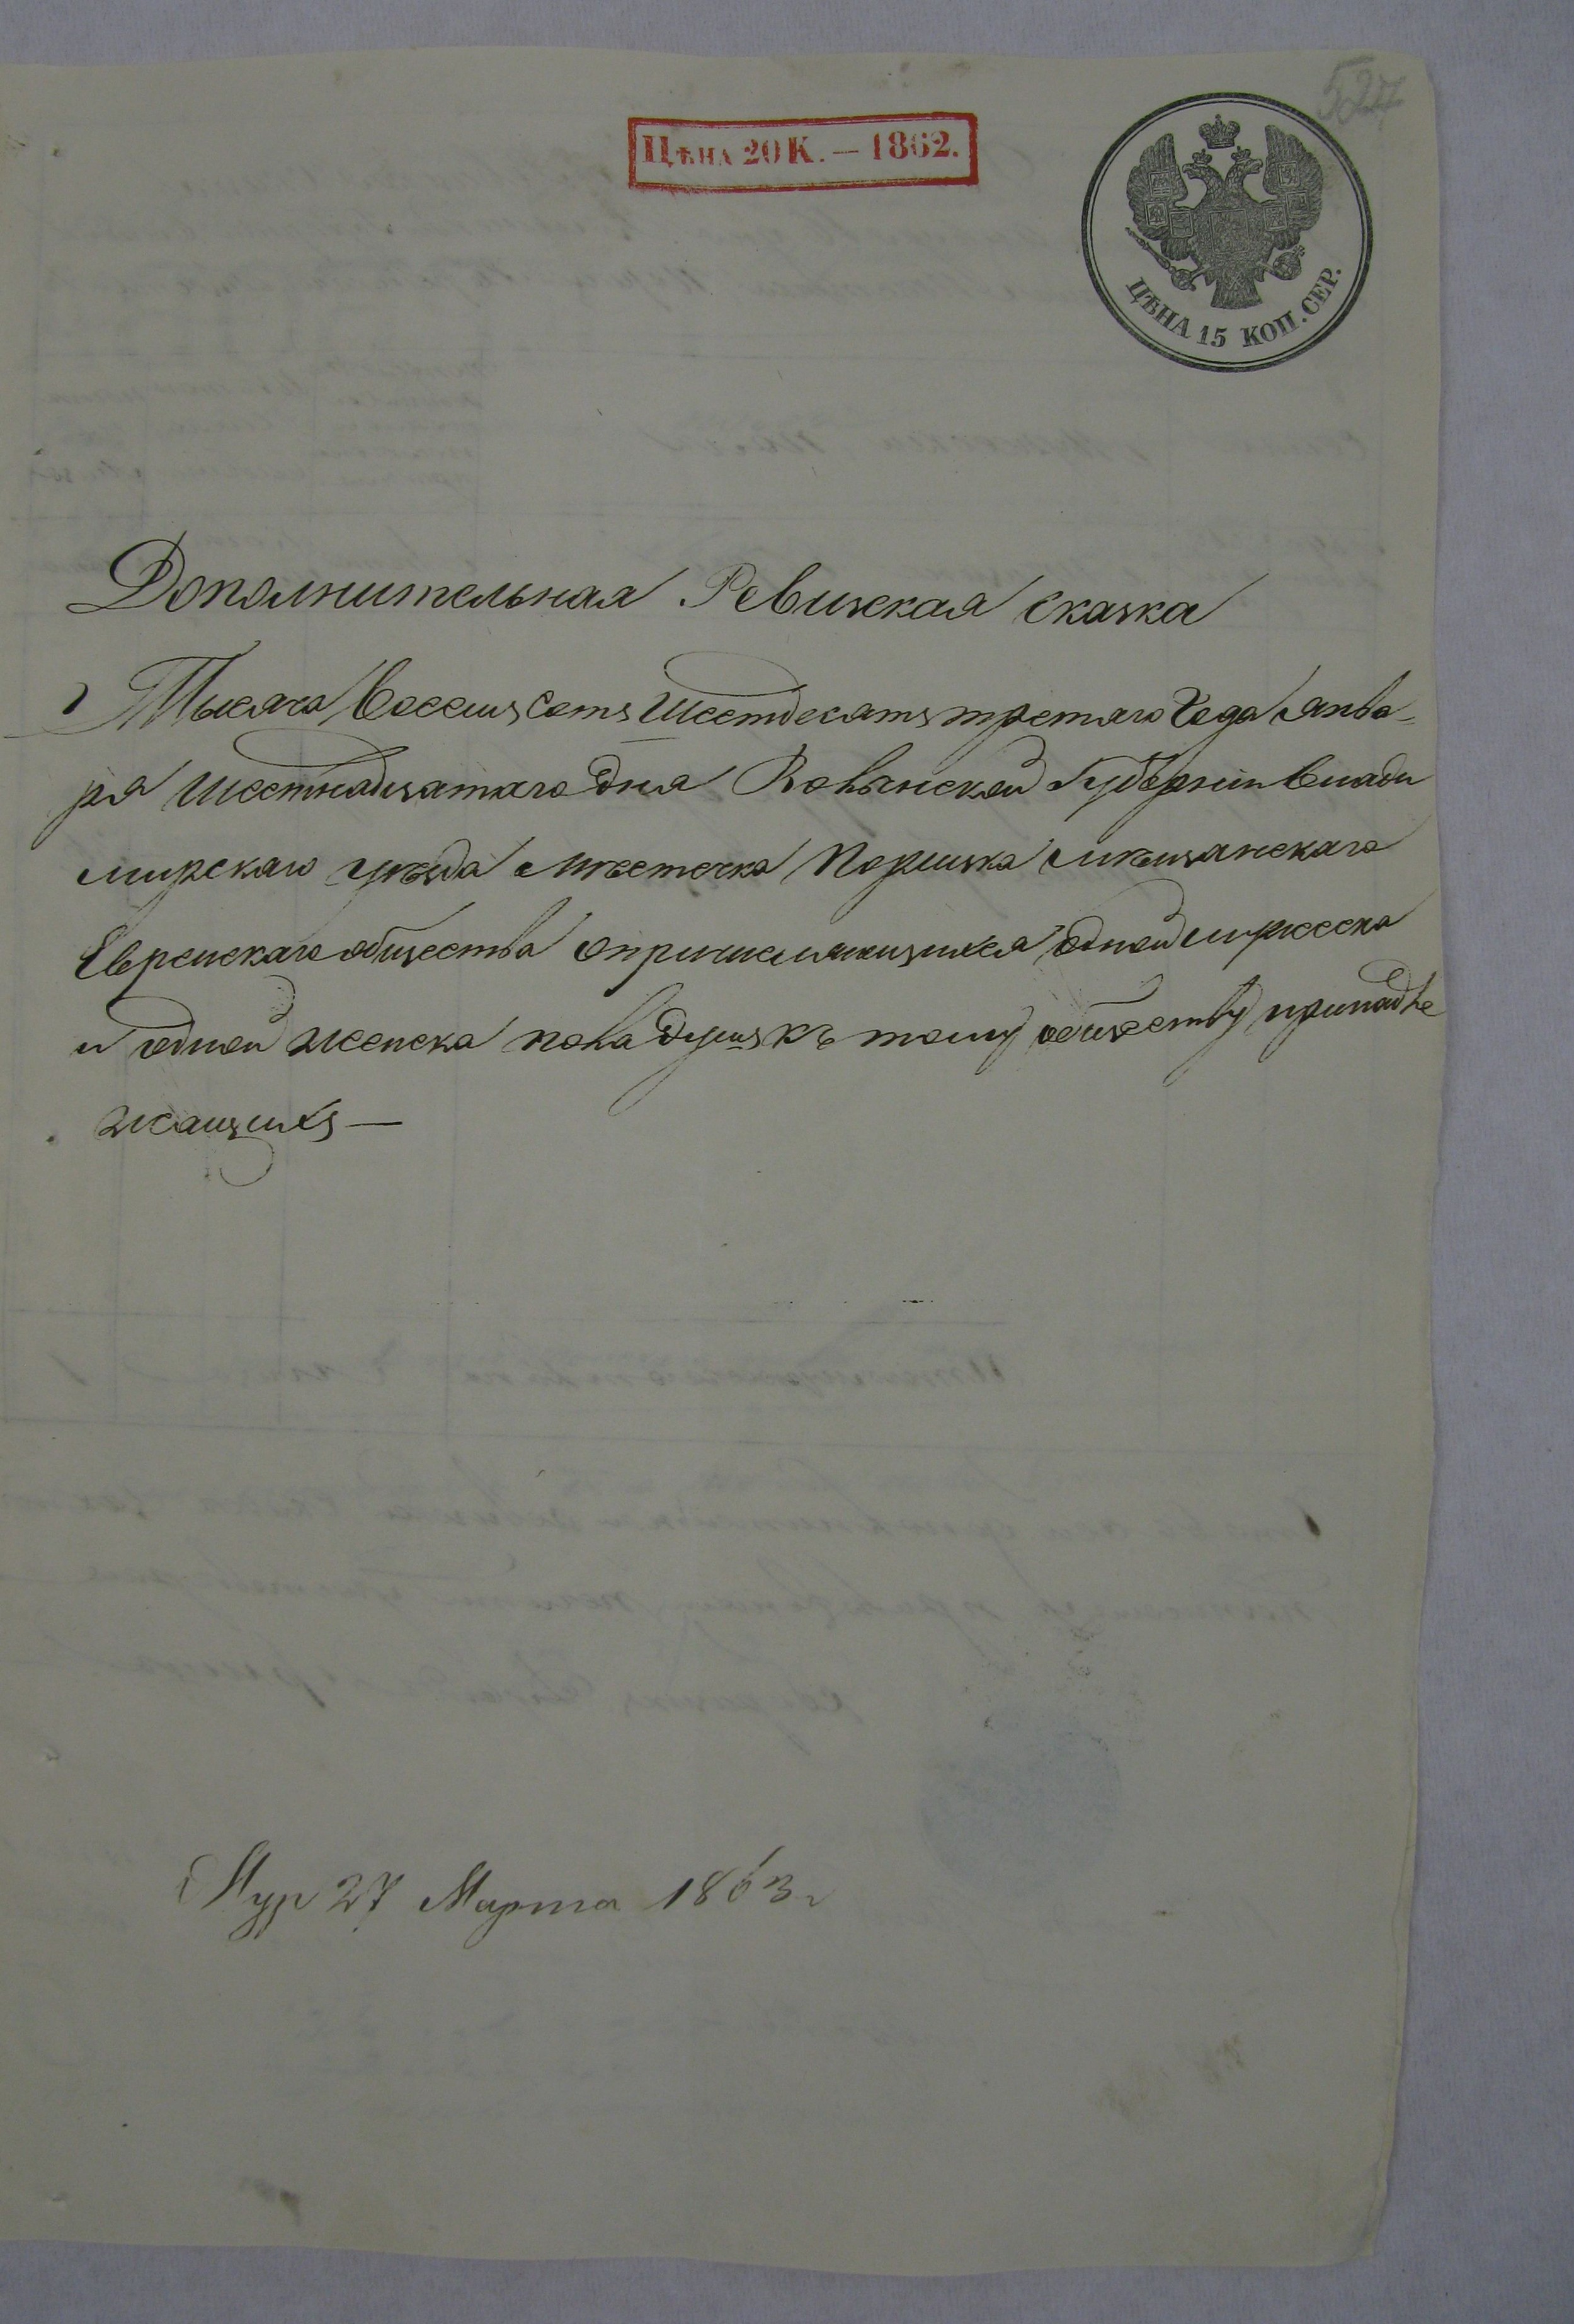 527
ЦѢНА 20 К. — 1862.
ЦѢНА 15 КОП. СЕР.
Дополнительная Ревизская сказка
Тысяча восемъ сотъ шестдесятъ третаго года Янва-
ря шестнадцатаго дня Волынской Губерніи Влади
мирскаго уѣзда мѣстечка Порицка мѣщанскаго
Еврейскаго общества о причисляющихся одной мужеска
и одной женска пола душъ къ тому обществу принадле
жащихъ —
27 Марта 1863 г